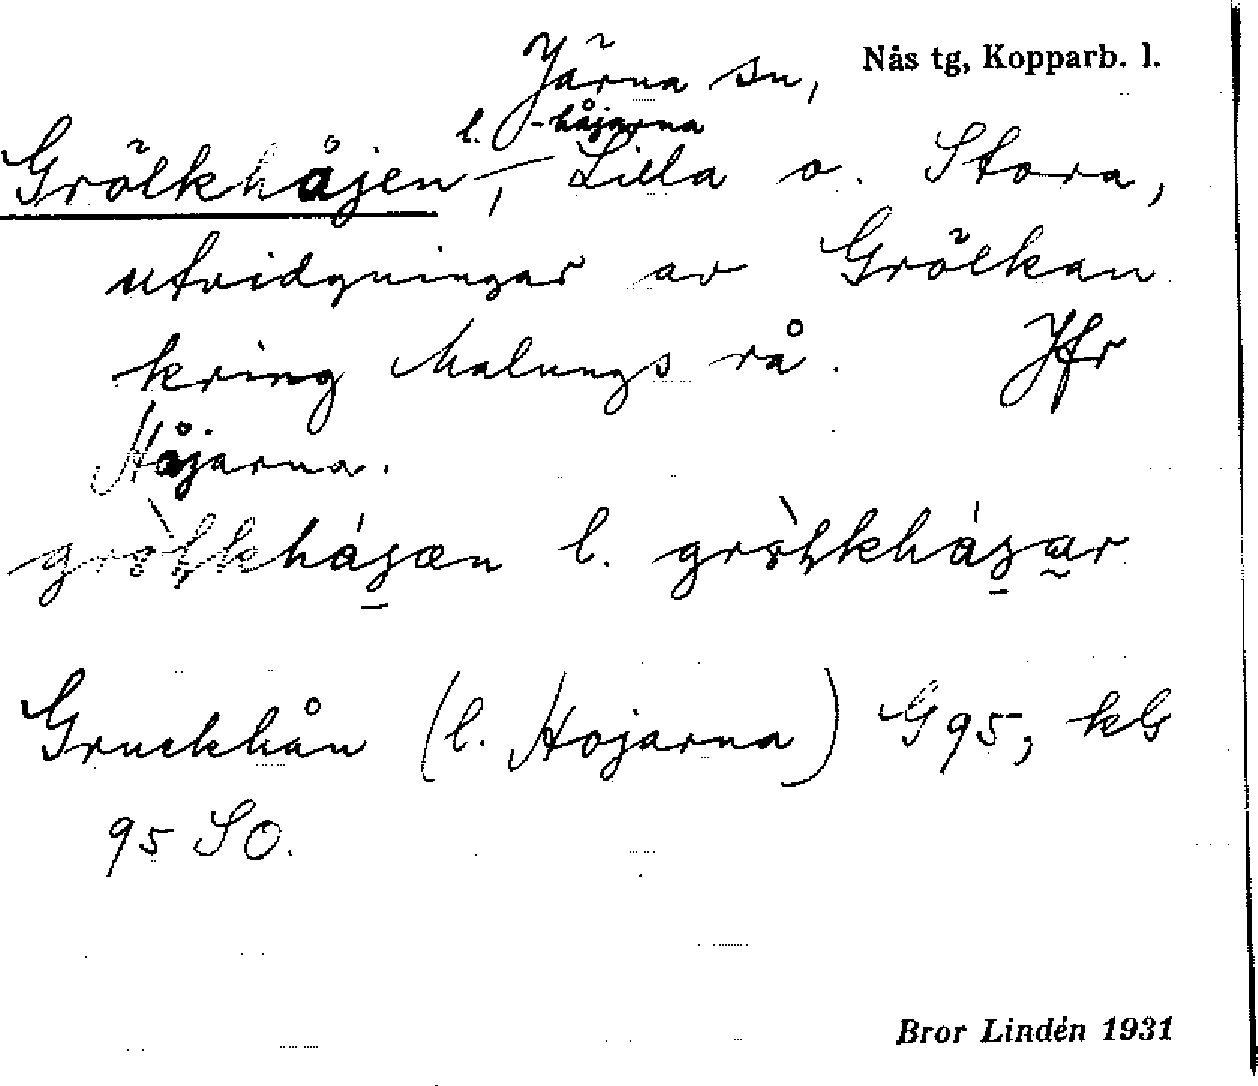 Järna sn, Nås tg, Kopparb. l.
l. -håjarna
Grölkhåjen, Lilla o. Stora,
utvidgningar av Grölkan
kring Malungs rå. Jfr
Håjarna.
l.
Gruckhån (l. Hojarna) G95, kG
95 SO.
Bror Lindén 1931